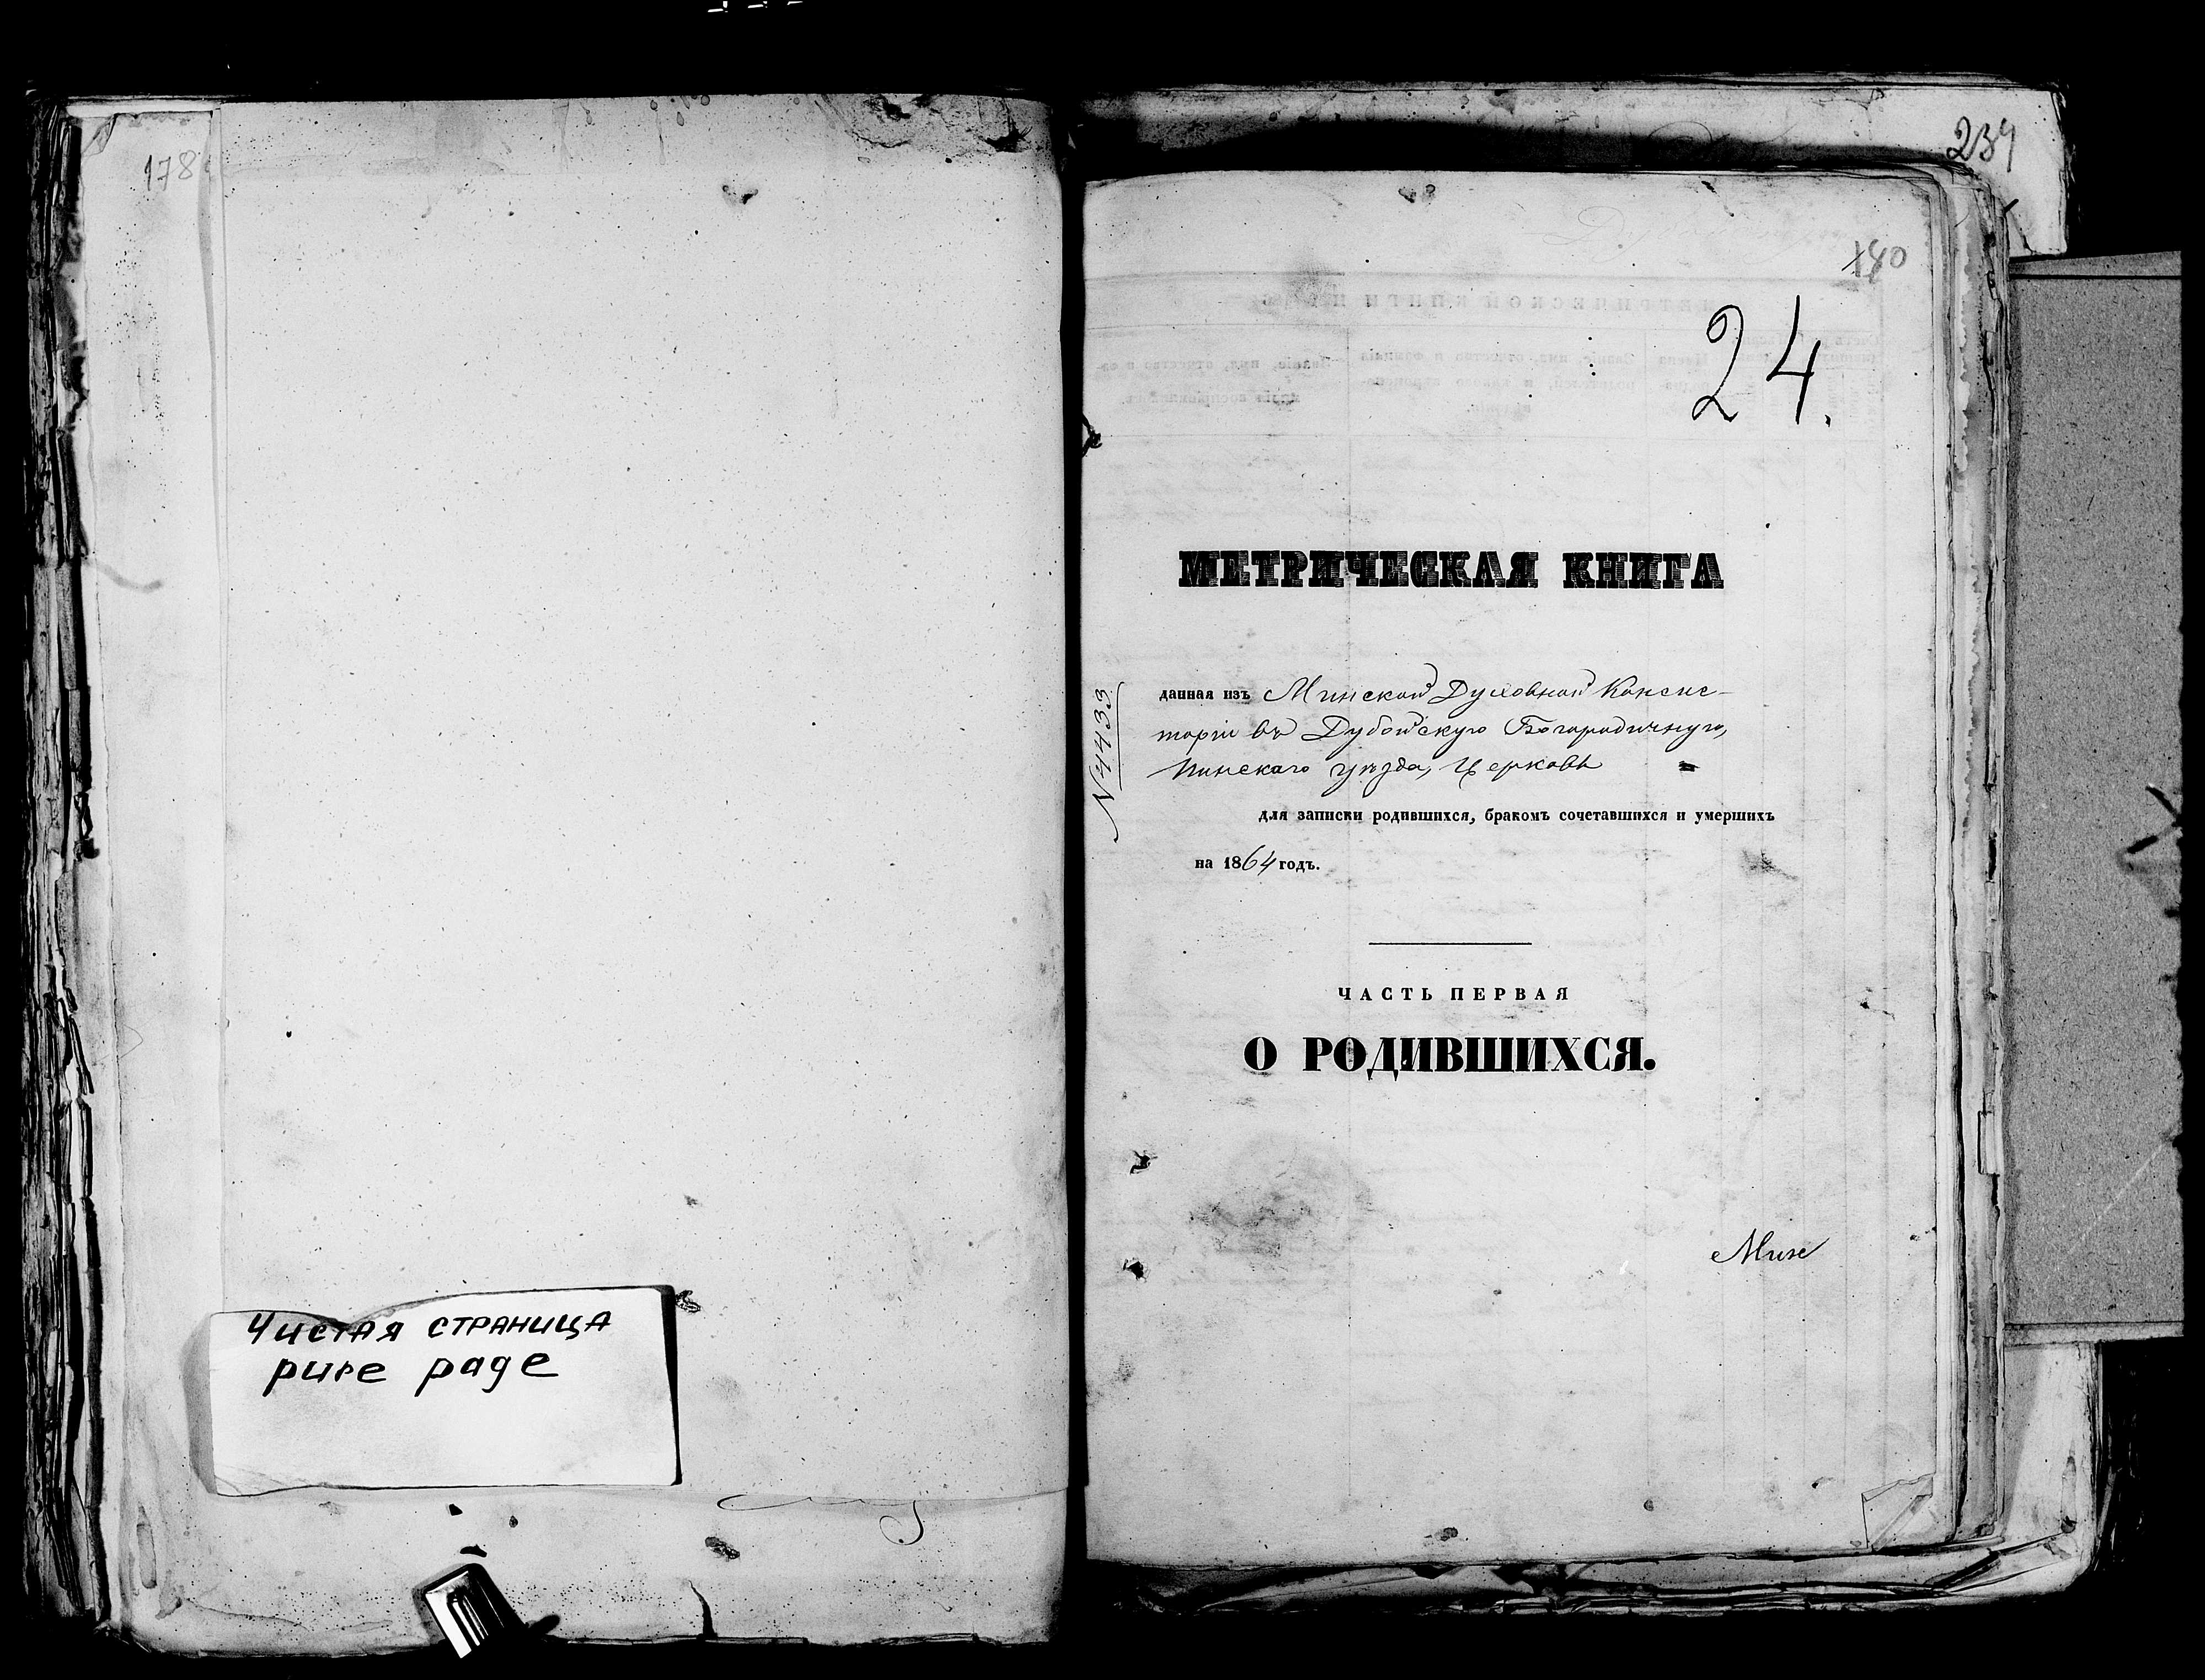 178
Чистая страница
pure page
239
140
24.
МЕТРИЧЕСКАЯ КНИГА
данная изъ Минской Духовной Консис-
торіи въ Дубойскую Богородичную,
Пинскаго уѣзда, Церковь
N 4433
для записки родившихся, бракомъ сочетавшихся и умершихъ
на 1864 годъ.
ЧАСТЬ ПЕРВАЯ
О РОДИВШИХСЯ.